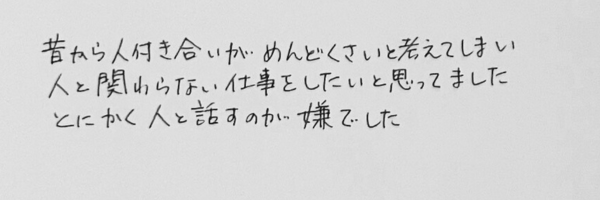 昔から人付き合いが めんどくさいと考えてしまい
人と関わらない仕事をしたいと思ってました
とにかく人と話すのが嫌でした